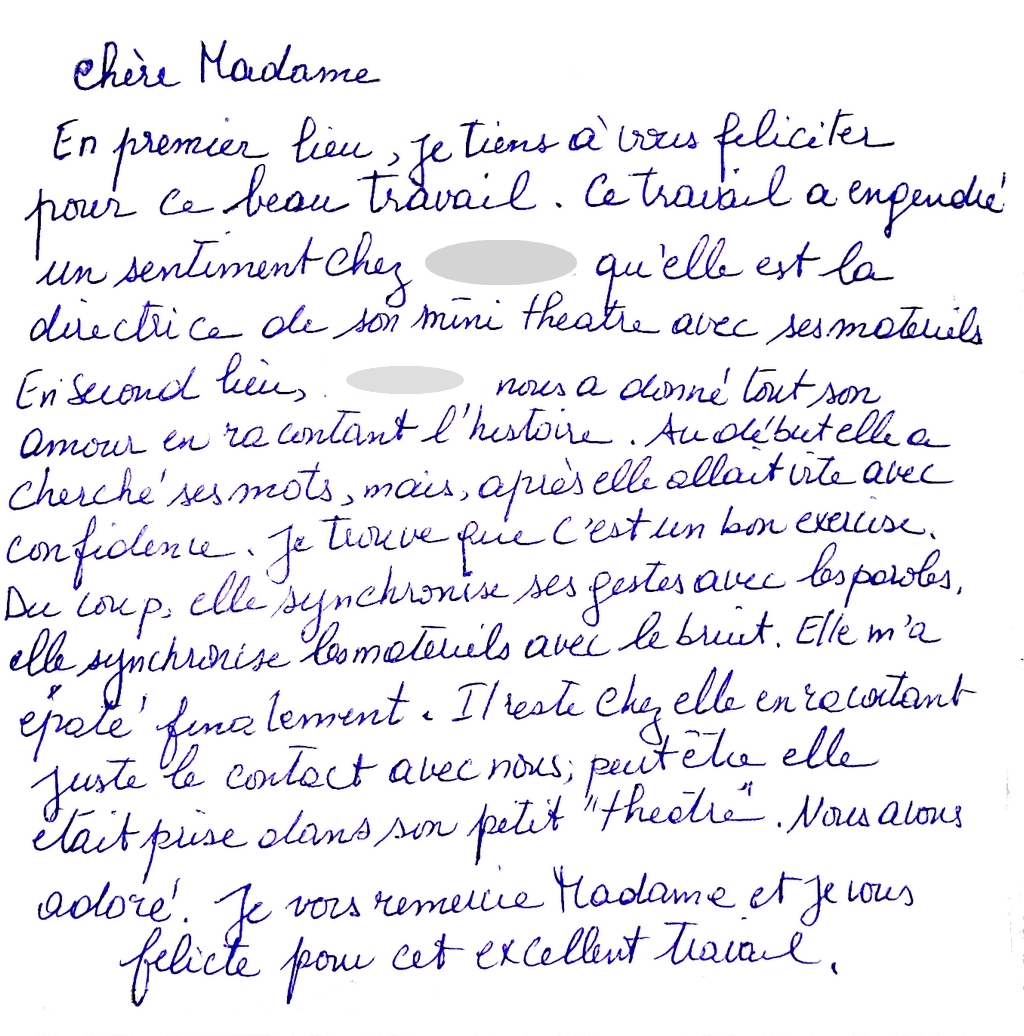 Chère Madame
En premier lieu, je tiens à vous feliciter
pour ce beau travail. Ce travail a engendré
un sentiment chez qu'elle est la
directrice de son mini theatre avec ses materiels
En second lieu, nous a donné tout son
amour en racontant l'histoire. Au début elle a
cherché ses mots, mais, après elle allait vite avec
confidence. Je trouve que c'est un bon exercise.
Du coup, elle synchronise ses gestes avec les paroles,
elle synchronise les materiels avec le bruit. Elle m'a
épaté finalement. Il reste chez elle en racontant
juste le contact avec nous; peut être elle
était prise dans son petit "theâtre". Nous avons
adoré. Je vous remercie Madame et je vous
felicte pour cet excellent travail.